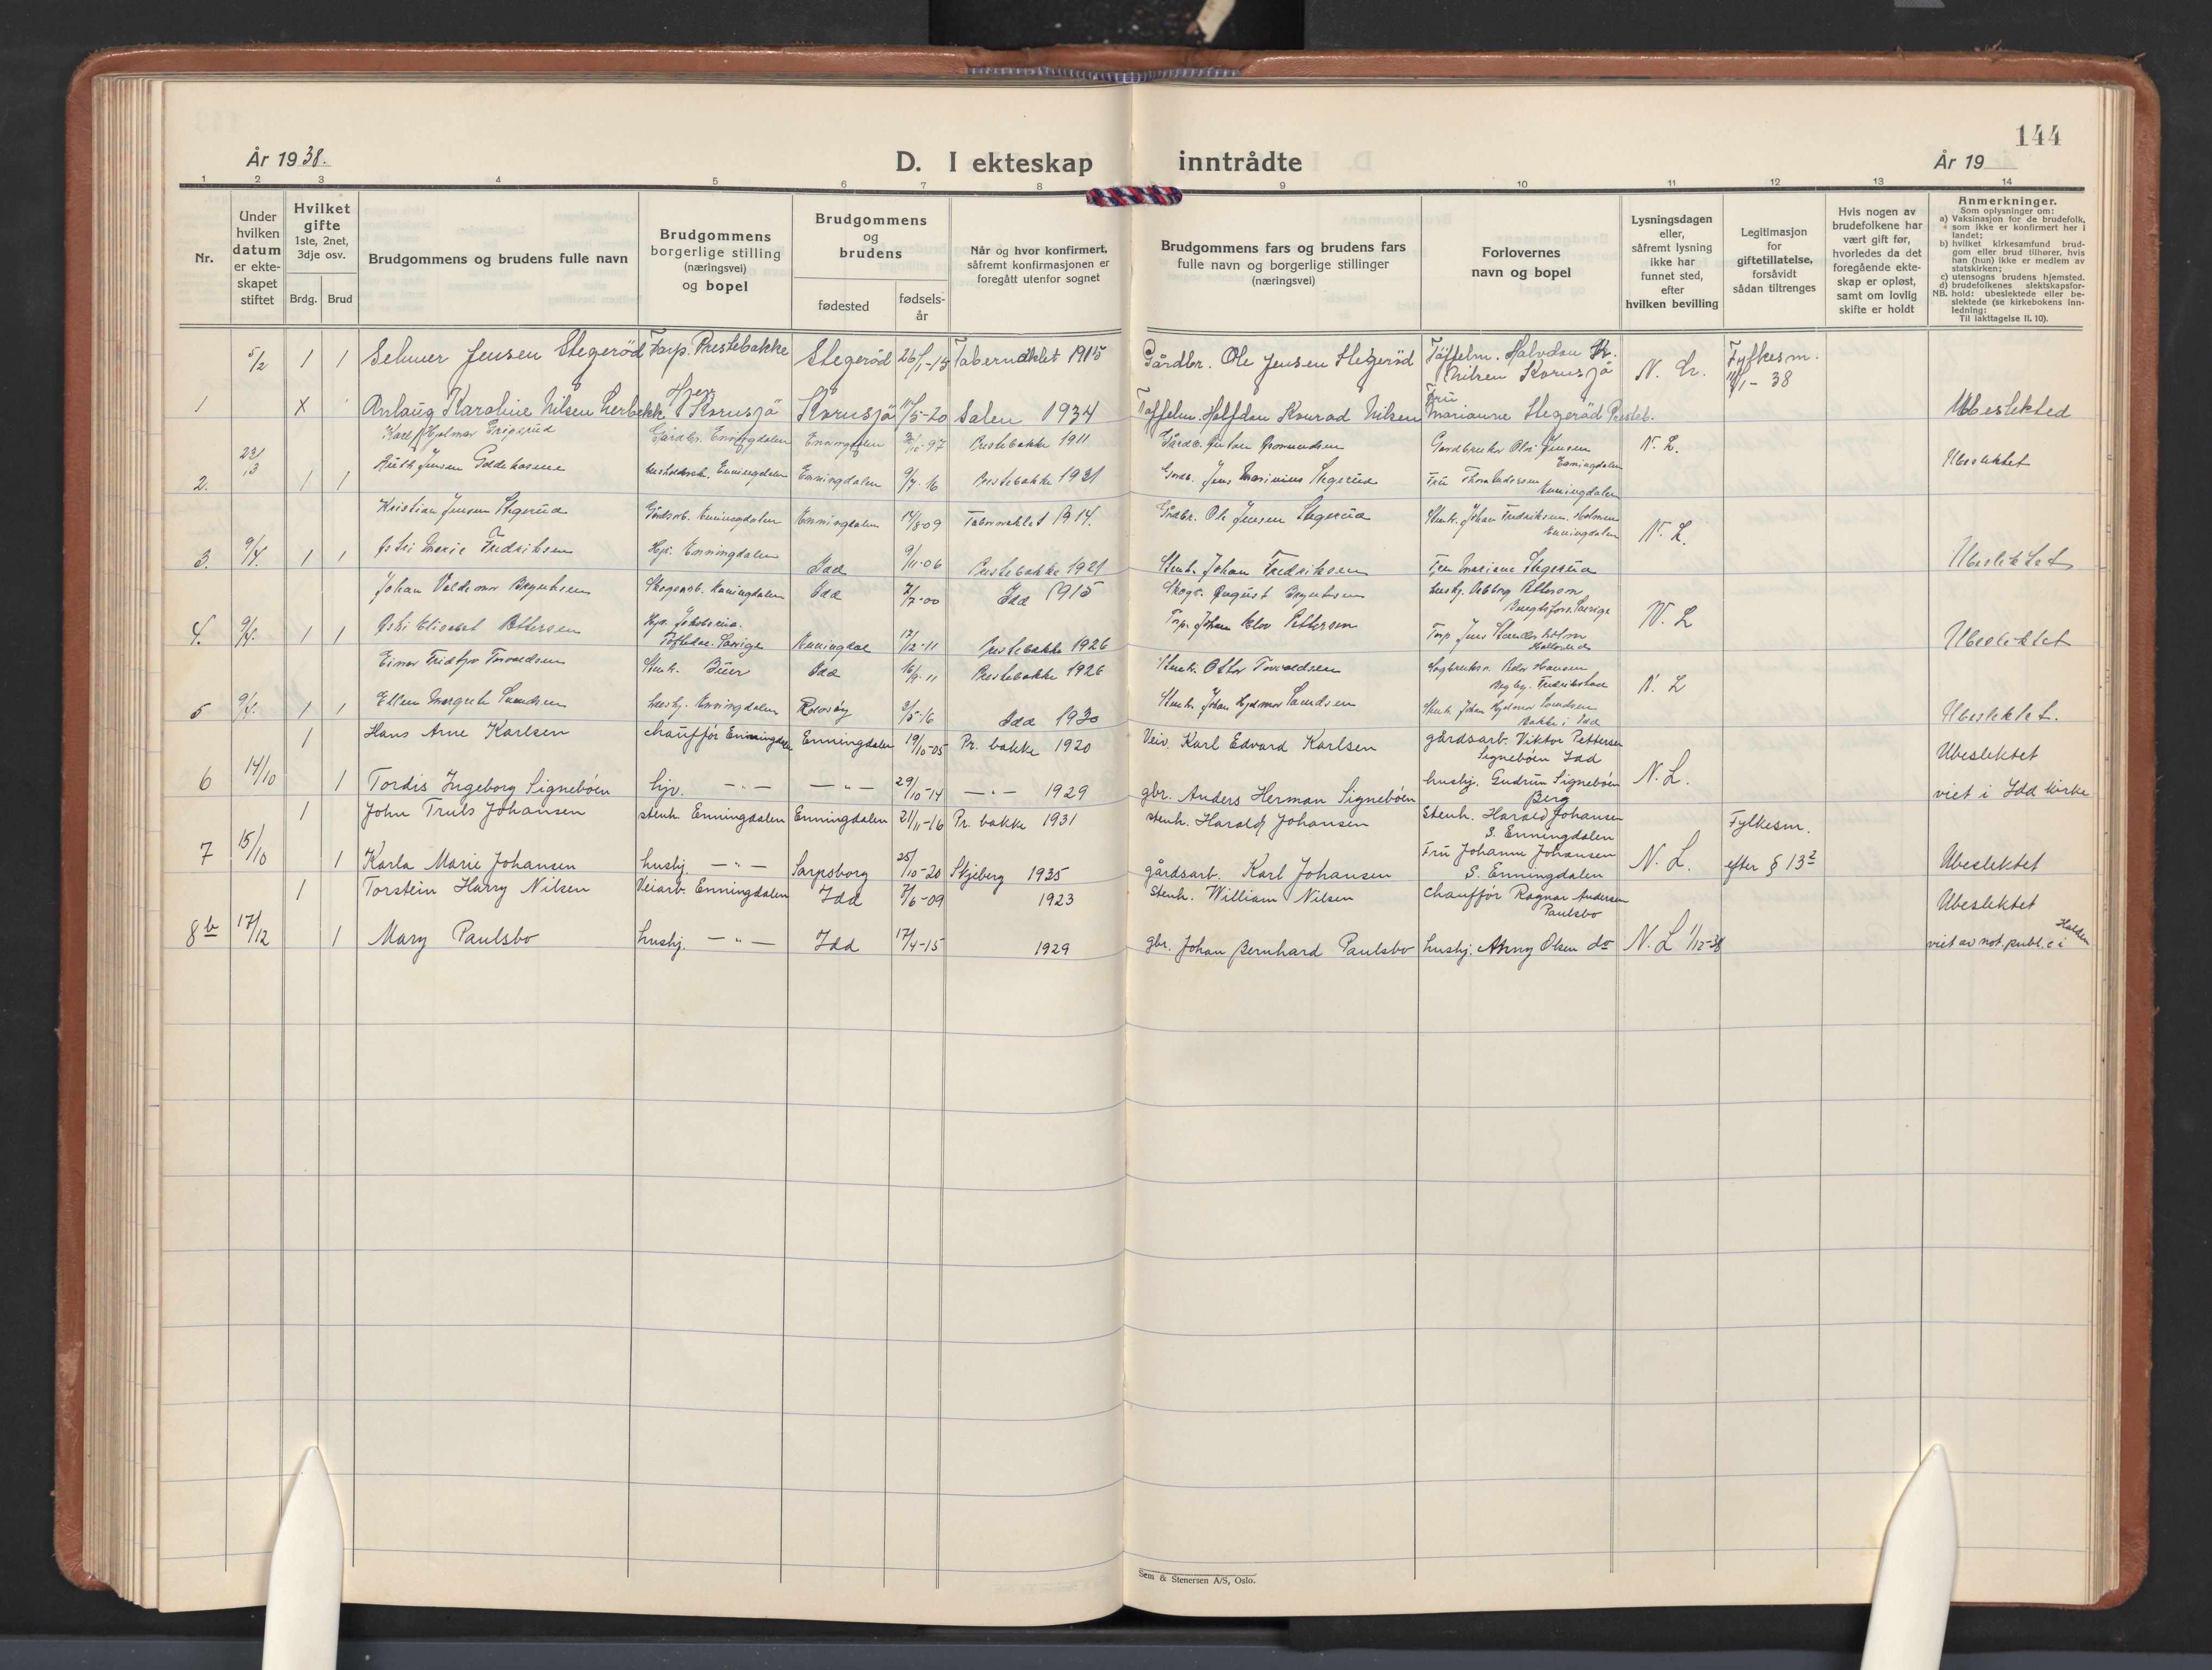 144
År 1938.
D. I ekteskap inntrådte
År 19
1 2 3 4 5 6 7 8 9 10 11 12 13 14
Nr.
Under hvilken datum er ekteskapet stiftet
Hvilket gifte 1ste, 2net, 3dje osv.
Brdg. Brud
Brudgommens og brudens fulle navn
Brudgommens borgerlige stilling (næringsvei) og bopel
Brudgommens og brudens
fødested
fødselsår
Når og hvor konfirmert, såfremt konfirmasjonen er foregått utenfor sognet
Brudgommens fars og brudens fars fulle navn og borgerlige stillinger (næringsvei)
Forlovernes navn og bopel
Lysningsdagen eller, såfremt lysning ikke har funnet sted, efter hvilken bevilling
Legitimasjon for giftetillatelse, forsåvidt sådan tiltrenges
Hvis nogen av brudefolkene har vært gift før, hvorledes da det foregående ekteskap er opløst, samt om lovlig skifte er holdt
Anmerkninger.
Som oplysninger om:
a) Vaksinasjon for de brudefolk, som ikke er konfirmert her i landet;
b) hvilket kirkesamfund brudgom eller brud tilhører, hvis han (hun) ikke er medlem av statskirken;
c) utensogns brudens hjemsted.
d) brudefolkenes slektskapsforhold: ubeslektede eller beslektede (se kirkebokens innledning:
NB.
Til iakttagelse II. 10).
5/2 1 1 Selmer Jensen Stegerød Prestebakke Stegerød 26/1-15 Tabernaklet 1915 Gårdbr. Ole Jensen Stegerød Tøffelm. Halvdan Kr. Nilsen Kornsjø Fylkesm. 11/1-38
1 X Anlaug Karoline Nilsen Kornsjø Kornsjø 11/5-20 Salen 1934 Tøffelm. Halfdan Konrad Nilsen Fru Marianne Stegerød Presteb. Ubeslekted
Karl Hjalmar Gårdbr. Enningdalen Enningdalen Prestebakke 1911 Gårdbruker Jensen Enningdalen N. L.
2. 23/3 1 1 Ruth Jensen Enningdalen Enningdalen 9/7-16 Prestebakke 1931 Jens Marinius Stegerud Fru Thora Andersen Enningdalen Ubeslektet
Kristian Jensen Stegerud Enningdalen Enningdalen 14/8-09 Tabernaklet 1914. Gårdbr. Ole Jensen Stegerud Stenh. Johan Fredriksen Holmen Enningdalen N. L.
3. 9/4. 1 1 Marie Fredriksen Hjv. Enningdalen Idd 9/11-06 Prestebakke 1921 Stenh. Johan Fredriksen Fru Mariane Stegerud Ubeslektet
Johan Valdemar Skogsarb. Enningdalen Idd 7/7-00 Idd 1915 August N. L
4. 9/4. 1 1 Elisabet Pettersen Enningdal 17/12-11 Prestebakke 1926 Johan Pettersen Ubeslektet
Einar Fridtjov Torvaldsen Stenh. Buer Idd 16/9-11 Prestebakke 1926 Stenh. Otto Torvaldsen Hansen Fredrikstad N. L
5 9/4. 1 1 Ellen Margrete Enningdalen 3/5-16 Idd 1930 Stenh. Johan Hjalmar Stenh. Johan Hjalmar Bakke i Idd Ubeslektet.
1 Hans Arne Karlsen chauffør Enningdalen Enningdalen 19/10-05 Pr. bakke 1920 Veiv. Karl Edvard Karlsen gårdsarb. Viktor Pettersen Signebøen Idd Ubeslektet
6 14/10 1 Tordis Ingeborg Signebøen hjv. —"— —"— 29/10-14 —"— 1929 gbr. Anders Herman Signebøen hushj. Gudrun Signebøen Berg N. L. viet i Idd kirke
1 John Truls Johansen stenh. Enningdalen Enningdalen 21/11-16 Pr. bakke 1931 stenh. Harald Johansen Stenh. Harald Johansen S. Enningdalen Fylkesm.
7 15/10 1 Karla Marie Johansen hushj. —"— Sarpsborg 25/10-20 Skjeberg 1935 gårdsarb. Karl Johansen Fru Johanne Johansen S. Enningdalen N. L. efter § 13² Ubeslektet
1 Torstein Harry Nilsen Veiarb. Enningdalen Idd 7/6-09 1923 Stenh. William Nilsen chauffør Ragnar Andersen Paulsbo Ubeslektet
8b 17/12 1 Mary Paulsbo hushj. —"— Idd 17/4-15 1929 gbr. Johan Bernhard Paulsbo hushj. Anny Olsen do N. L 1/12-38 viet av not. publ. i Halden
Sem & Stenersen A/S, Oslo.